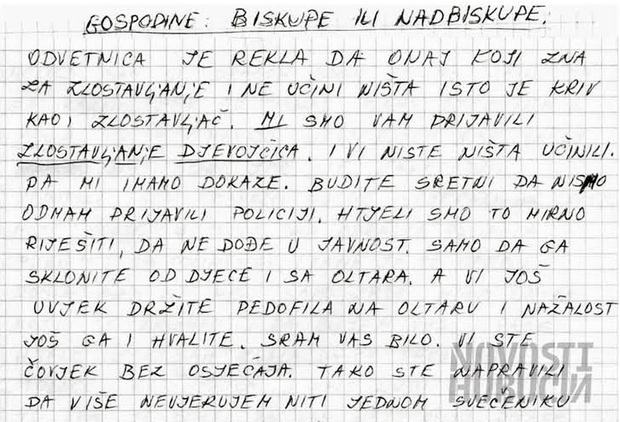 GOSPODINE: BISKUPE ILI NADBISKUPE.
ODVETNICA JE REKLA DA ONAJ KOJI ZNA
ZA ZLOSTAVLJANJE I NE UČINI NIŠTA ISTO JE KRIV
KAO I ZLOSTAVLJAČ. MI SMO VAM PRIJAVILI
ZLOSTAVLJANJE DJEVOJČICA. I VI NISTE NIŠTA UČINILI.
PA MI IMAMO DOKAZE. BUDITE SRETNI DA NISMO
ODMAH PRIJAVILI POLICIJI. HTJELI SMO TO MIRNO
RIJEŠITI, DA NE DOĐE U JAVNOST. SAMO DA GA
SKLONITE OD DJECE I SA OLTARA. A VI JOŠ
UVJEK DRŽITE PEDOFILA NA OLTARU I NAŽALOST
JOŠ GA I HVALITE. SRAM VAS BILO. VI STE
ČOVJEK BEZ OSJEĆAJA. TAKO STE NAPRAVILI
DA VIŠE NEVJERUJEM NITI JEDNOM SVEĆENIKU
NOVOSTI